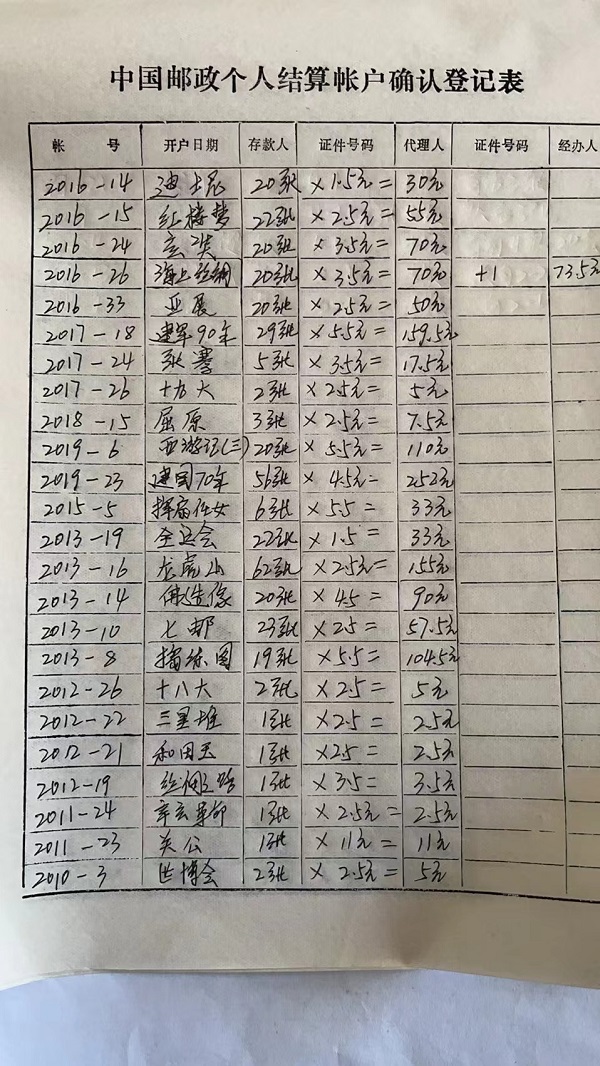 中国邮政个人结算帐户确认登记表
帐 号 开户日期 存款人 证件号码 代理人 证件号码 经办人
2016-14 迪士尼 20张 ×1.5元= 30元
2016-15 红楼梦 22张 ×2.5元= 55元
2016-24 玄奘 20张 ×3.5元= 70元
2016-26 海上丝绸 20张 ×3.5元= 70元 +1 73.5元
2016-33 亚展 20张 ×2.5元= 50元
2017-18 建军90年 29张 ×5.5元= 159.5元
2017-24 张骞 5张 ×3.5元= 17.5元
2017-26 十九大 2张 ×2.5元= 5元
2018-15 屈原 3张 ×2.5元= 7.5元
2019-6 西游记(三) 20张 ×5.5元= 110元
2019-23 建国70年 56张 ×4.5元= 252元
2015-5 挥扇仕女 6张 ×5.5= 33元
2013-19 全运会 22张 ×1.5= 33元
2013-16 龙虎山 62张 ×2.5元= 155元
2013-14 佛造像 20张 ×4.5= 90元
2013-10 七邮 23张 ×2.5= 57.5元
2013-8 捣练图 19张 ×5.5= 104.5元
2012-26 十八大 2张 ×2.5= 5元
2012-22 三星堆 1张 ×2.5= 2.5元
2012-21 和田玉 1张 ×2.5= 2.5元
2012-19 丝绸之路 1张 ×3.5= 3.5元
2011-24 辛亥革命 1张 ×2.5元= 2.5元
2011-23 关公 1张 ×11元= 11元
2010-3 世博会 2张 ×2.5元= 5元